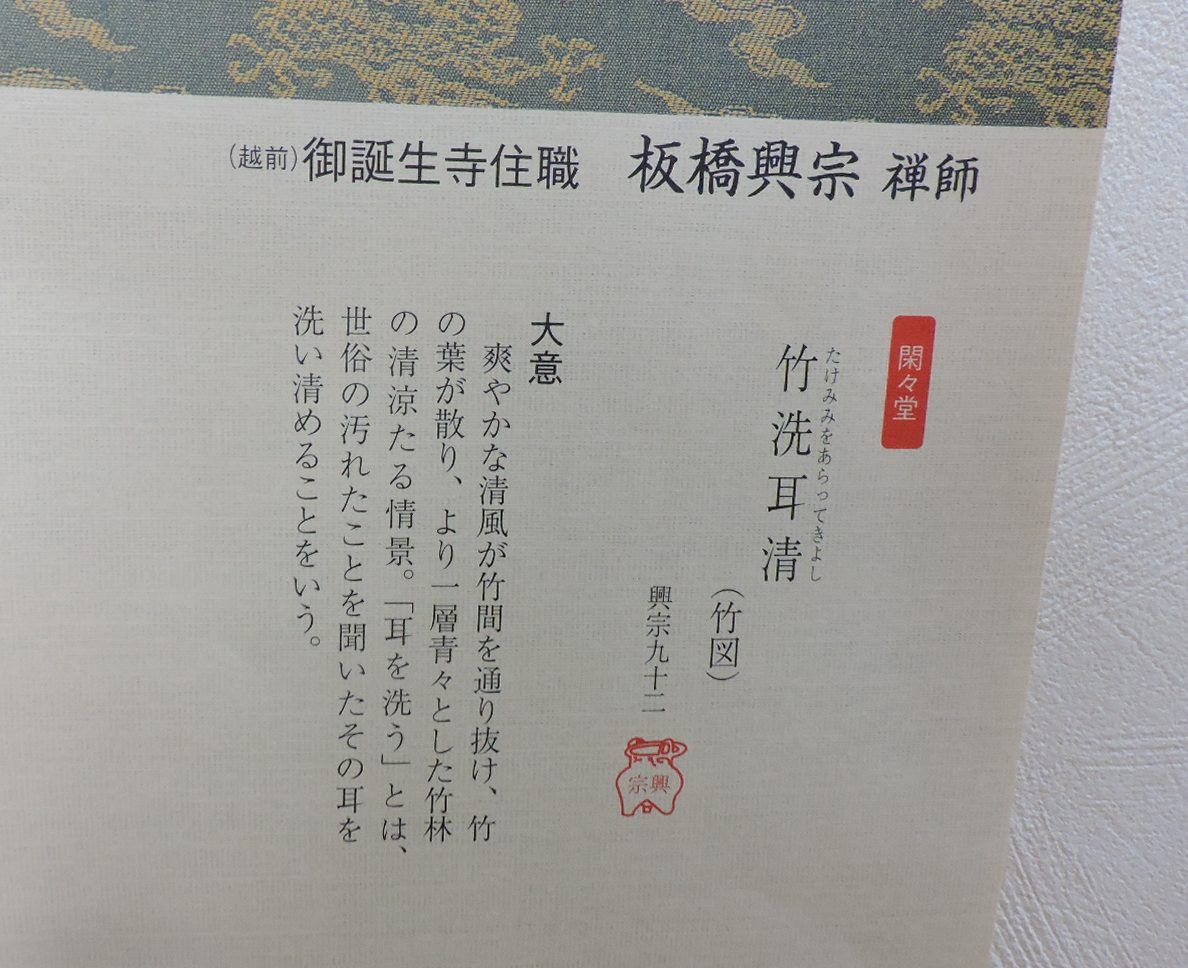 （越前）御誕生寺住職　板橋興宗 禅師
閑々堂
たけみみをあらってきよし
竹洗耳清
（竹図）
興宗九十二
興宗
大意
爽やかな清風が竹間を通り抜け、竹
の葉が散り、より一層青々とした竹林
の清涼たる情景。「耳を洗う」とは、
世俗の汚れたことを聞いたその耳を
洗い清めることをいう。